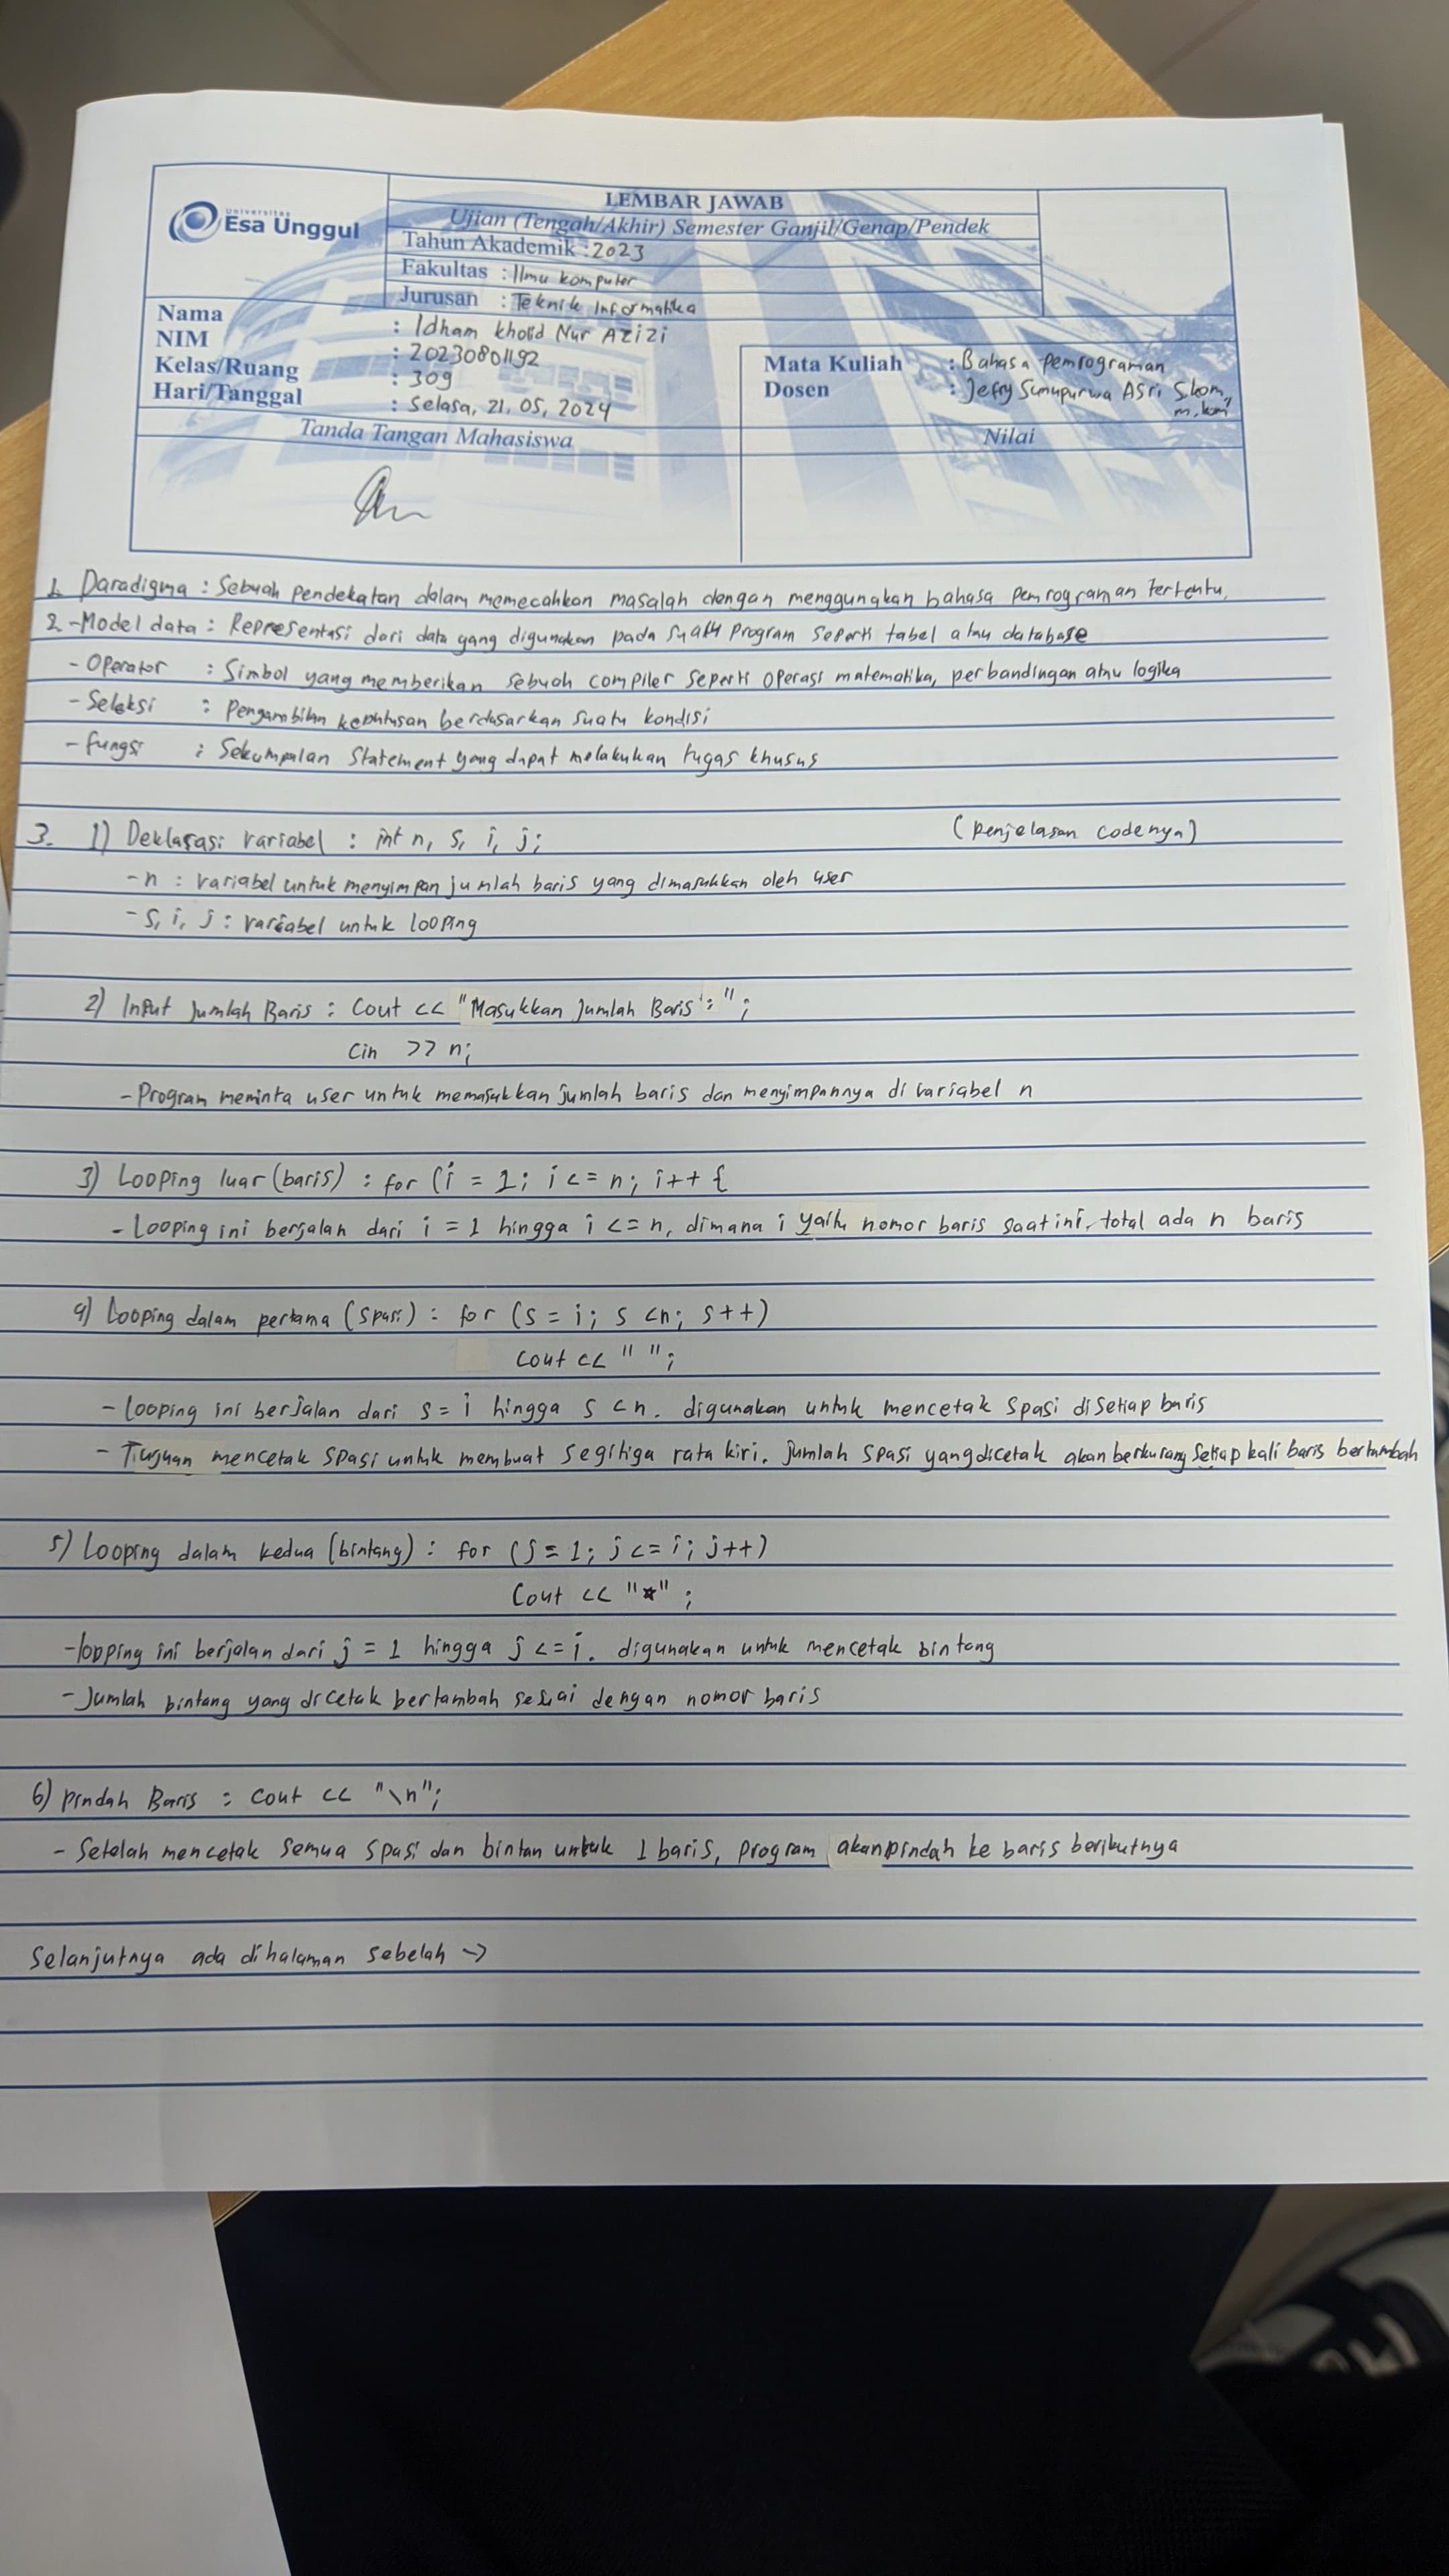 Universitas
Esa Unggul
LEMBAR JAWAB
Ujian (Tengah/Akhir) Semester Ganjil/Genap/Pendek
Tahun Akademik : 2023
Fakultas : Ilmu komputer
Jurusan : Teknik Informatika
Nama : Idham kholid Nur Azizi
NIM : 20230801192
Kelas/Ruang : 309
Hari/Tanggal : Selasa, 21, 05, 2024
Mata Kuliah : Bahasa pemrograman
Dosen : Jefry Sunupurwa Asri S.kom,
m.kom
Tanda Tangan Mahasiswa
Nilai
1. Paradigma : Sebuah pendekatan dalam memecahkan masalah dengan menggunakan bahasa pemrograman tertentu.
2. - Model data : Representasi dari data yang digunakan pada suatu program seperti tabel atau database
- Operator : Simbol yang memberikan sebuah compiler seperti operasi matematika, perbandingan atau logika
- Seleksi : Pengambilan keputusan berdasarkan suatu kondisi
- fungsi : Sekumpulan Statement yang dapat melakukan tugas khusus
3. 1) Deklarasi variabel : int n, s, i, j; (penjelasan codenya)
- n : variabel untuk menyimpan jumlah baris yang dimasukkan oleh user
- s, i, j : variabel untuk looping
2) Input Jumlah Baris : Cout << "Masukkan Jumlah Baris : ";
Cin >> n;
- Program meminta user untuk memasukkan jumlah baris dan menyimpannya di variabel n
3) Looping luar (baris) : for (i = 1; i <= n; i++ {
- Looping ini berjalan dari i = 1 hingga i <= n, dimana i yaitu nomor baris saat ini, total ada n baris
4) Looping dalam pertama (spasi) : for (s = i; s <n; s++)
Cout << " ";
- looping ini berjalan dari s = i hingga s < n. digunakan untuk mencetak spasi disetiap baris
- Tujuan mencetak spasi untuk membuat segitiga rata kiri. jumlah spasi yang dicetak akan berkurang setiap kali baris bertambah
5) Looping dalam kedua (bintang) : for (j = 1; j <= i; j++)
Cout << "*" ;
- lopping ini berjalan dari j = 1 hingga j <= i. digunakan untuk mencetak bintang
- Jumlah bintang yang dicetak bertambah sesuai dengan nomor baris
6) pindah Baris : cout << "\n";
- Setelah mencetak semua spasi dan bintan untuk 1 baris, program akan pindah ke baris berikutnya
Selanjutnya ada dihalaman sebelah ->